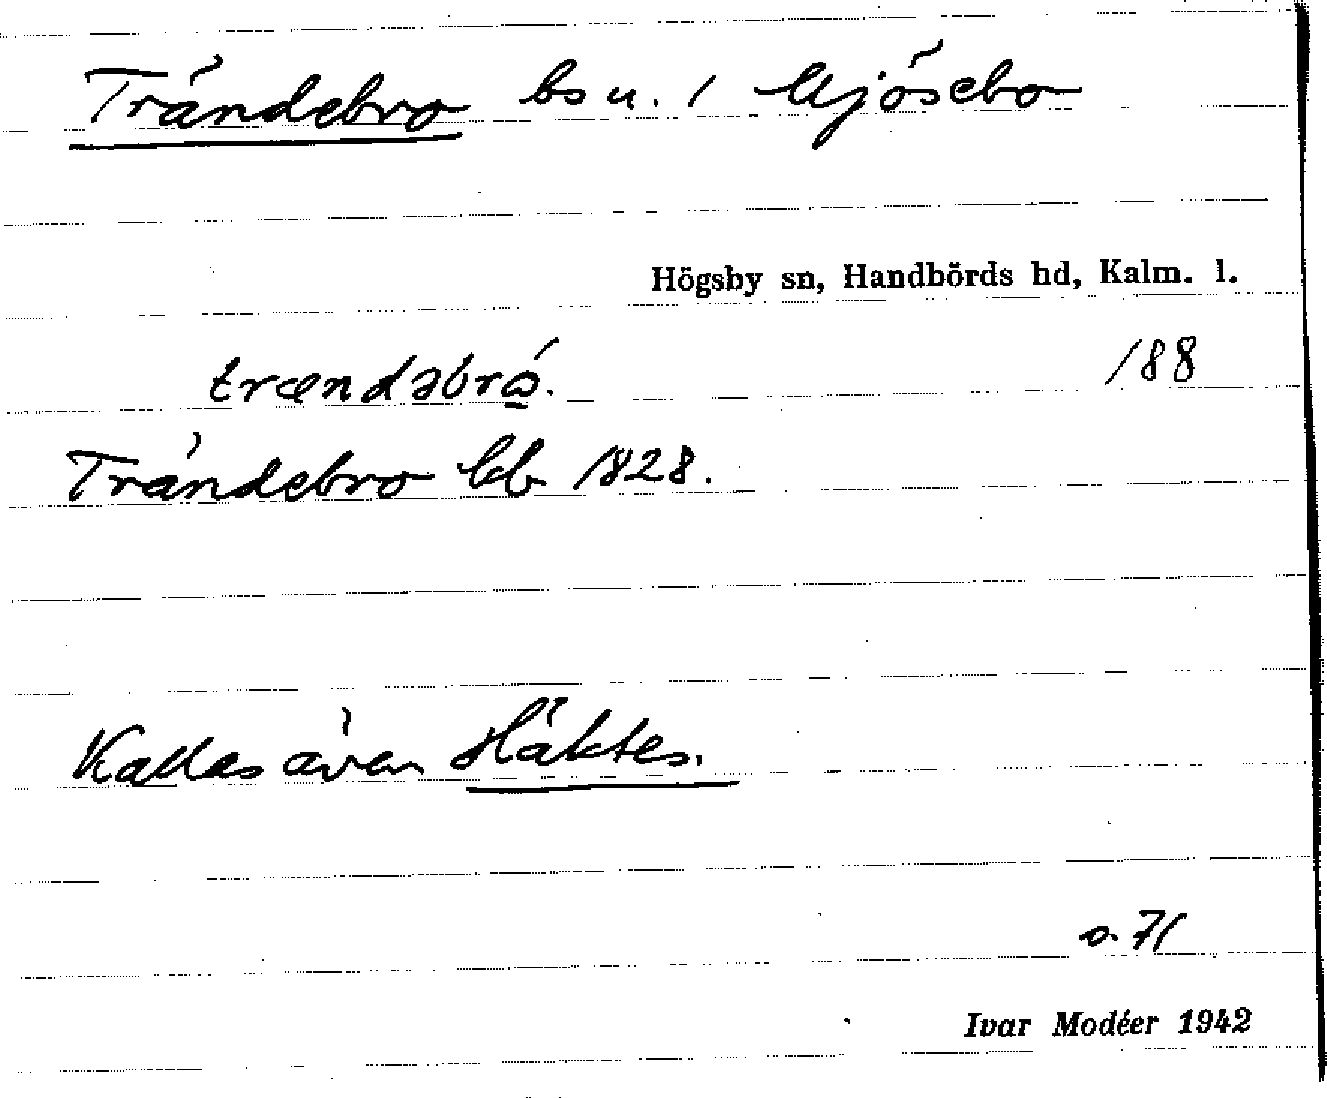 Trändebro bs u. 1 Ajösebo
Högsby sn, Handbörds hd, Kalm. l.
trændəbró. 188
Trändebro kb 1828.
Kallas även Häktes.
s. 71
Ivar Modéer 1942